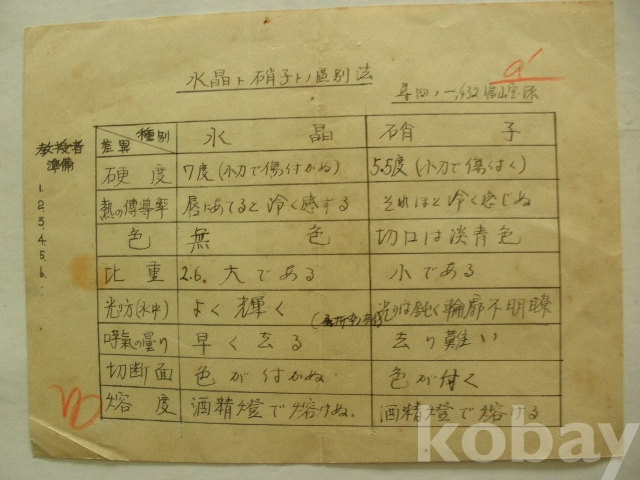 水晶ト硝子トノ區別法
教授者
準備
1.
2.
3.
4.
5.
6.
種別
差異
水 晶
硝 子
硬 度
7度(小刀で傷付かぬ)
5.5度(小刀で傷付く)
熱の傳導率
唇にあてると冷く感する
それほど冷く感じぬ
色
無 色
切口は淡青色
比 重
2.6. 大である
小である
光り方(水中)
よく輝く
光りは鈍く輪廓不明瞭
呼氣の曇り
早く去る
去り難い
切断面
色が付かぬ
色が付く
熔 度
酒精燈で熔けぬ.
酒精燈で熔ける
kobay